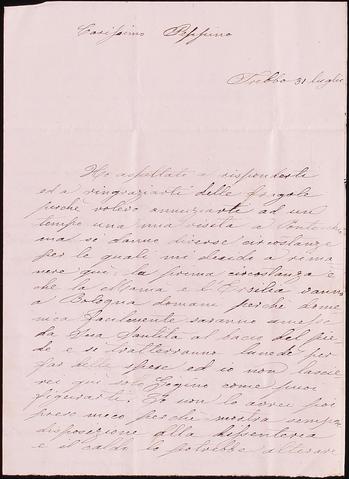 Carissimo Peppino
Trebbo 31 luglio
Ho aspettato a risponderti
ed a ringraziarti delle fragole
perchè volevo annuziarte ad un
tempo una mia visita a
ma se danno diverse circostanze
per le quali mi decido a rima
nere qui. la prima circostanza è
che la Mama e l'Ersilia vanno
a Bologna domani perchè dome
nica facilmente saranno
da Sua Santità al bacio del pie
de e si tratterranno lunedì per
far delle spese ed io non lascie
rei qui solo Gigino come puoi
figurarti. Io non lo avrei poi
preso meco perchè mostra sempre
disposizione alla dissenteria
e il caldo lo potrebbe alterare